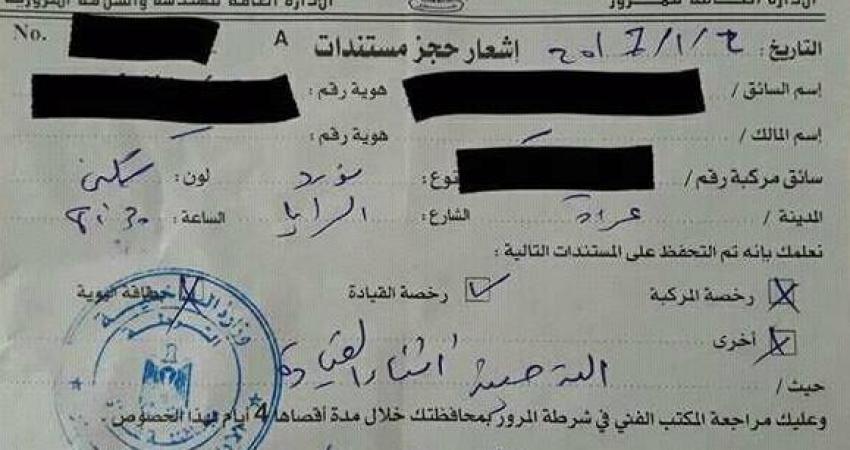 الإدارة العامة للمرور الإدارة العامة للهندسة والسلامة المرورية
التاريخ : 2017/1/2 إشعار حجز مستندات A No.
إسم السائق / هوية رقم :
إسم المالك / هوية رقم :
سائق مركبة رقم / نوع : فورد لون : سكني
المدينة / غزة الشارع : السرايا الساعة : 8:30
نعلمك بإنه تم التحفظ على المستندات التالية :
رخصة المركبة رخصة القيادة بطاقة الهوية
أخرى
حيث / أثناء القيادة
وعليك مراجعة المكتب الفني في شرطة المرور بمحافظتك خلال مدة أقصاها 4 أيام لهذا الخصوص .
وزارة الداخلية
الشرطة